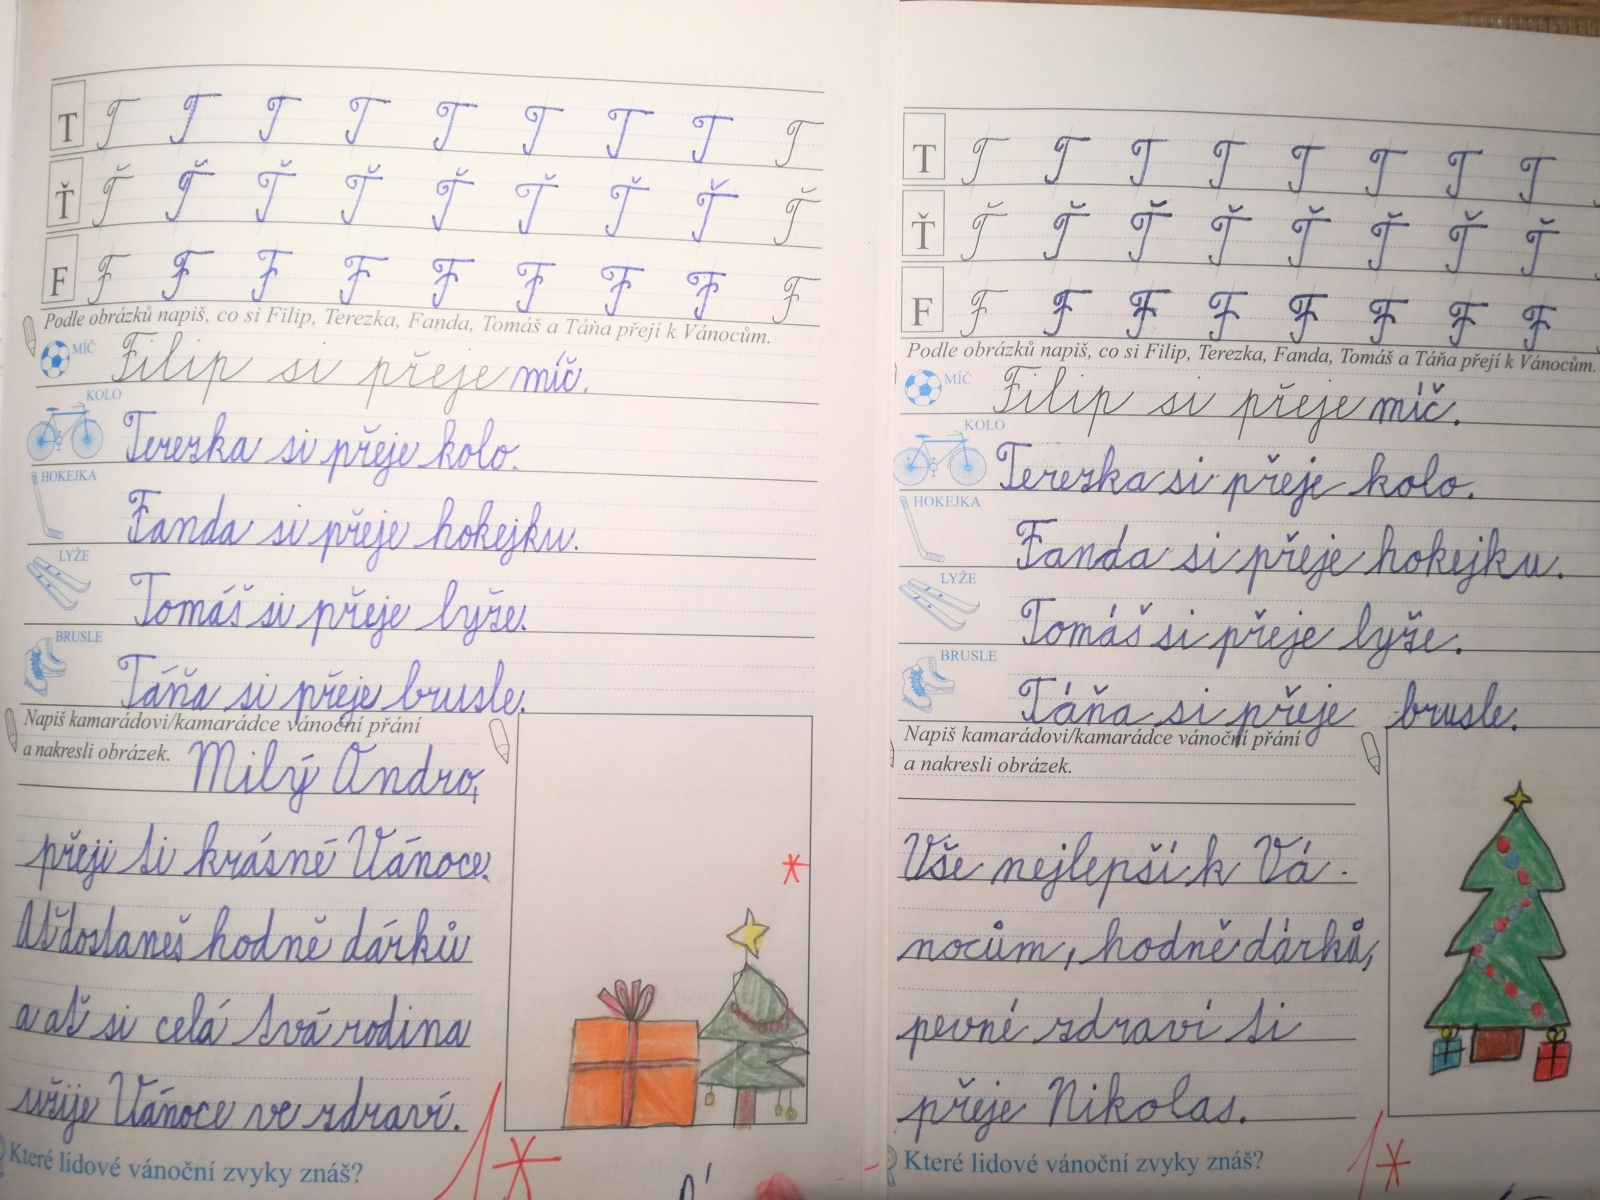 T T T T T T T T T T
Ť Ť Ť Ť Ť Ť Ť Ť Ť Ť
F F F F F F F F F F
Podle obrázků napiš, co si Filip, Terezka, Fanda, Tomáš a Táňa přejí k Vánocům.
MÍČ Filip si přeje míč.
KOLO
Terezka si přeje kolo.
HOKEJKA
Fanda si přeje hokejku.
LYŽE
Tomáš si přeje lyže.
BRUSLE
Táňa si přeje brusle.
Napiš kamarádovi/kamarádce vánoční přání
a nakresli obrázek. Milý Ondro,
přeji ti krásné Vánoce.
Ať dostaneš hodně dárků
a ať si celá tvá rodina
užije Vánoce ve zdraví.
Které lidové vánoční zvyky znáš?
1*
T T T T T T T T T
Ť Ť Ť Ť Ť Ť Ť Ť Ť
F F F F F F F F F
Podle obrázků napiš, co si Filip, Terezka, Fanda, Tomáš a Táňa přejí k Vánocům.
MÍČ Filip si přeje míč.
KOLO
Terezka si přeje kolo.
HOKEJKA
Fanda si přeje hokejku.
LYŽE
Tomáš si přeje lyže.
BRUSLE
Táňa si přeje brusle.
Napiš kamarádovi/kamarádce vánoční přání
a nakresli obrázek.
Vše nejlepší k Vá-
nocům, hodně dárků,
pevné zdraví ti
přeje Nikolas.
Které lidové vánoční zvyky znáš?
1*